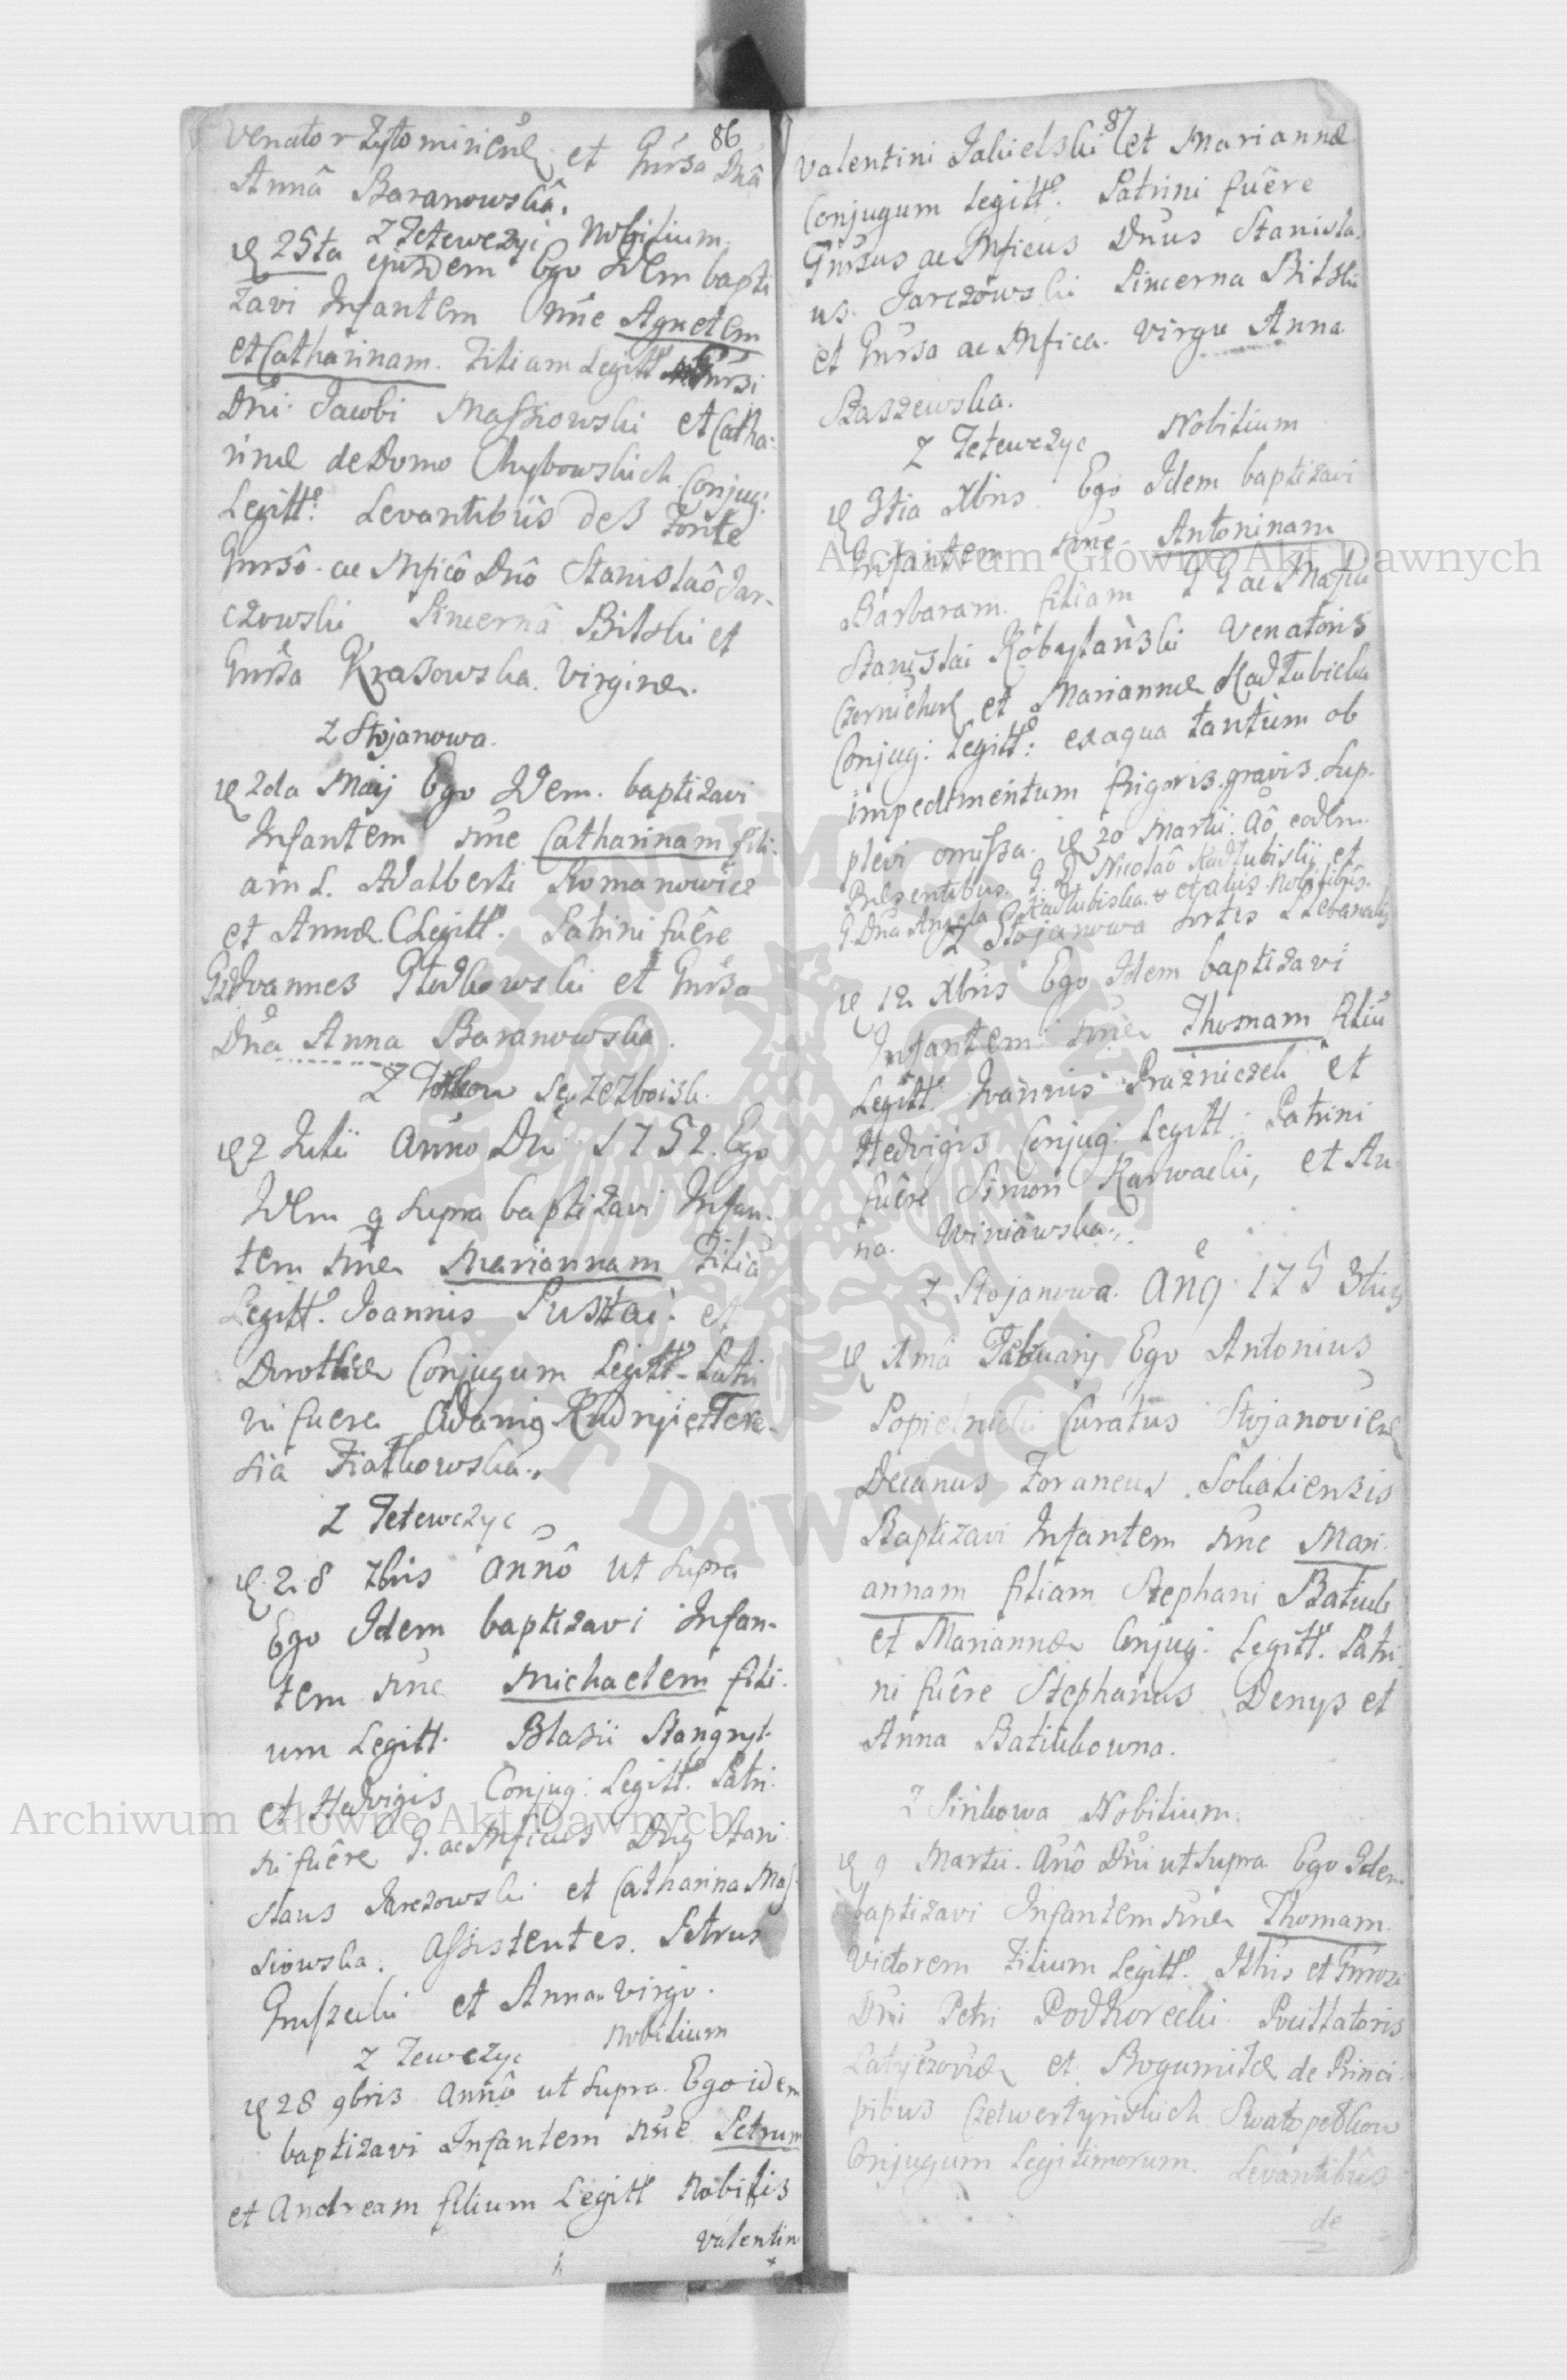 86
Venator Zytomirień et Gnrsa Dnâ
Annâ Baranowskâ.
Z Tetewczyc Nobilium
25ta ejusdem Ego Idem bapti
zavi Infantem nne Agnetem
et Catharinam. Filiam Legitt Gnrsi
Dni Jacobi Massiowski et Catha-
rinæ de Domo Chybowskich Conjug:
Legitt: Levantibus de S Fonte
Gnrsô ac Mficô Dnô Stanislaô Jar-
czowski Pincernâ Bilski et
Gnrsa Krasowska Virgine.
Z Stojanowa.
2da Maij Ego Idem baptizavi
Infantem nne Catharinam fili-
am L. Adalberti Romanowicz
et Annæ C Legitt. Patrini fuêre
Joannes Gludkowski et Gnrsa
Dna Anna Baranowska.
Z
2 Julii Anno Dni 1752. Ego
Idem q supra baptizavi Infan-
tem nne Mariannam Filiã
Legitt. Joannis Pustai et
Dorotheæ Conjugum Legitt. Patri
ni fuere Adamus Rudnyi et Tere-
sia Fiałkowska.
Z Tetewczyc
28 7bris Annô ut supra
Ego Idem baptizavi Infan-
tem nne Michaelem fili-
um Legitt. Blasii Stangryt
et Hedvigis Conjug: Legitt. Patri-
ni fuêre G. ac Mficus Dnus Stani
slaus Jarczowski et Catharina Mas-
siowska. Assistentes. Petrus
Gruszecki et Anna Virgo.
Z Tewczyc Nobilium
28 9bris Annô ut supra Ego idem
baptizavi Infantem nne Petrum
et Andream filium Legitt Nobilis
Valentin
87
Valentini Jakielski et Mariannæ
Conjugum Legitt. Patrini fuêre
Gnrsus ac Mficus Dnus Stanisla-
us Jarczowski Pincerna Bilski
et Gnrsa ac Mfica Virgo Anna
Staszewska.
Z Tetewczyc Nobilium
3tia Xbris Ego Idem baptizavi
Infantem nne Antoninam
Barbaram filiam G G ac Mafca
Stanislai Kobylański Venatoris
Czerniehov et Mariannæ Kadłubicka
Conjug: Legitt: ex aqua tantum ob
impedimentum frigoris gravis sup-
plevi omissa 20 Martii Aô eodem
Præsentibus G D Nicolaô Kadłubiskij et
G Dna Angela Kadłubiska et aliis Nobilibus.
Z Stojanowa
12 Xbris Ego Idem baptizavi
Infantem nne Thomam filiũ
Legitt. Ioannis Prazniczek et
Hedvigis Conjug: Legitt: Patrini
fuêre Simon Karwacki, et An
na Winiawska.
Z Stojanowa. Anq 175 3tius
1ma Februarij Ego Antonius
Popielnicki Curatus Stojanovień
Decanus Foraneus Sokaliensis
Baptizavi Infantem nne Mari-
annam filiam Stephani Batiuk
et Mariannæ Conjug: Legitt. Patri
ni fuêre Stephanus Denys et
Anna Batiukowna.
Z Sinkowa Nobilium.
9 Martii. Anô Dni ut supra Ego Idem
baptizavi Infantem nne Thomam
Victorem Filium Legitt. Illris et Gnrosi
Dni Petri Podhorecki
et Bogumiłæ de Princi-
pibus Czetwertyńskich Swatopełkow
Conjugum Legitimorum. Levantibus
de
Archiwum Główne Akt Dawnych
Archiwum Główne Akt Dawnych
ARCHIWUM GŁÓWNE AKT DAWNYCH